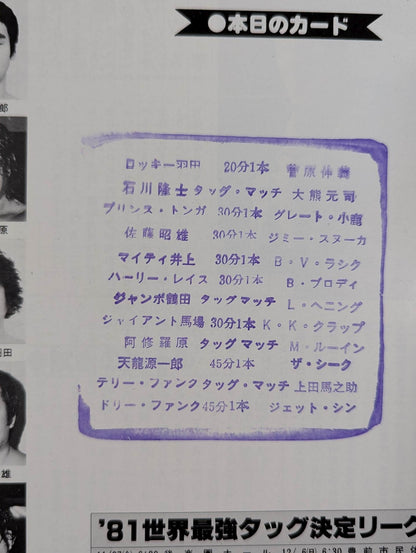 ●本日のカード
郎
原
田
雄
ロッキー羽田 20分1本 菅原伸義
石川隆士 タッグ・マッチ 大熊元司
プリンス・トンガ 30分1本 グレート・小鹿
佐藤昭雄 30分1本 ジミー・スヌーカ
マイティ井上 30分1本 B・V・ラシク
ハーリー・レイス 30分1本 B・ブロディ
ジャンボ鶴田 タッグマッチ L・ヘニング
ジャイアント馬場 30分1本 K・K・クラップ
阿修羅原 タッグマッチ M・ルーイン
天龍源一郎 45分1本 ザ・シーク
テリー・ファンク タッグ・マッチ 上田馬之助
ドリー・ファンク 45分1本 ジェット・シン
'81世界最強タッグ決定リーグ